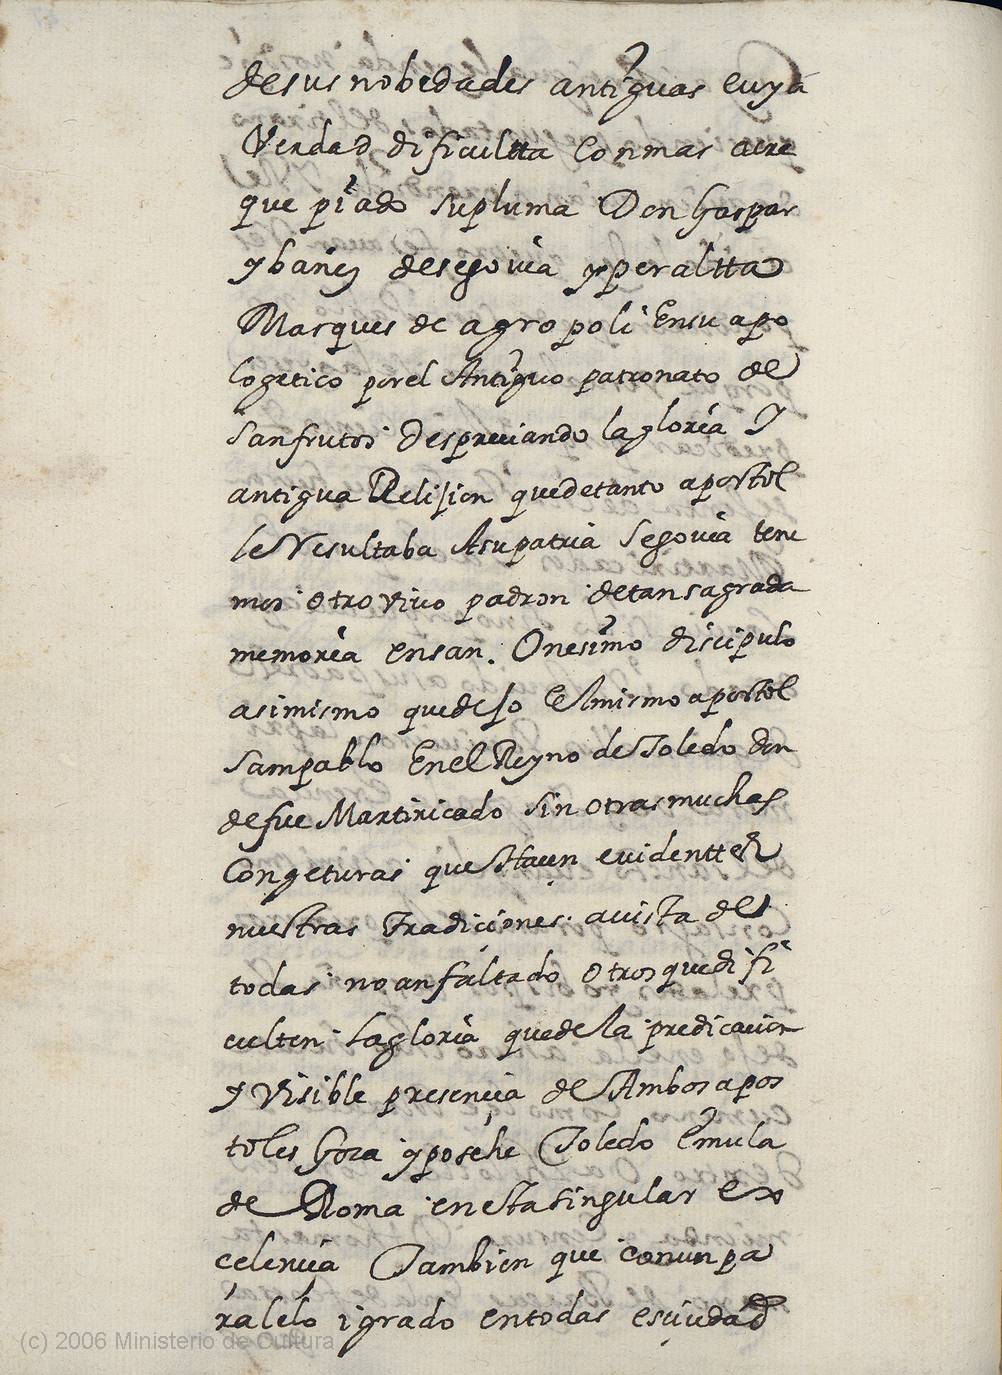 de sus nobedades antiguas cuya
Verdad dificultta con mas acre
que piado su pluma Don Gaspar
ybañez de segovia y peraltta
Marques de agropoli En su apo
logetico por el Antiguo patronato de
san frutos Despreciando la gloria y
antigua Relijion que de tanto apostol
le Resultaba A su patria Segovia tene
mos otro vivo padron de tan sagrada
memoria en san. Onesimo discipulo
asimismo que dejo el mismo apostol
sam pablo En el Reyno de Toledo don
de fue Martiricado sin otras muchas
Congeturas que Hacen evidenttes
nuestras tradiciones. a vista de
todas no an faltado otros que difi
culten la gloria que de la predicacion
y Visible presencia de Ambos apos
toles Goza y posehe Toledo Emula
de Roma en esta singular ex
celencia Tambien que con un pa
ralelo igrado en todas es ciudad
(c) 2006 Ministerio de Cultura